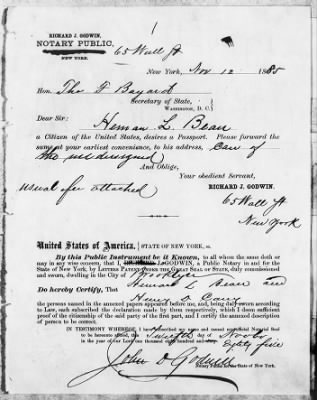 1
RICHARD J. GODWIN,
NOTARY PUBLIC, 65 Wall St
NEW YORK.
New York, Nov 12 1885
Hon. Tho F Bayard
Secretary of State,
WASHINGTON, D. C.
Dear Sir:
Heman L. Bean
a Citizen of the United States, desires a Passport. Please forward the
same at your earliest convenience, to his address, care of
the undersigned
And Oblige,
Your obedient Servant,
usual fee attached
RICHARD J. GODWIN.
65 Wall St
New York
United States of America, STATE OF NEW YORK, ss.
By this Public Instrument be it Known, To all whom the same doth or
may in any wise concern, that I, GODWIN, a Public Notary in and for the
State of New York, by LETTERS PATENT UNDER THE GREAT SEAL OF STATE, duly commissioned
and sworn, dwelling in the City of Brooklyn
Do hereby Certify, That Heman L Bean and
Henry D
the persons named in the annexed papers appeared before me, and, being duly sworn according
to Law, each subscribed the declaration made by them respectively, which I deem sufficient
proof of the citizenship of the said party of the first part, and I certify the annexed description
of person to be correct.
IN TESTIMONY WHEREOF, I have hereunto set my name and caused my official Notarial Seal
to be hereunto affixed, this day of
in the year of our Lord one thousand eight hundred and Eighty five
John D Godwin
Notary Public for the State of New York.